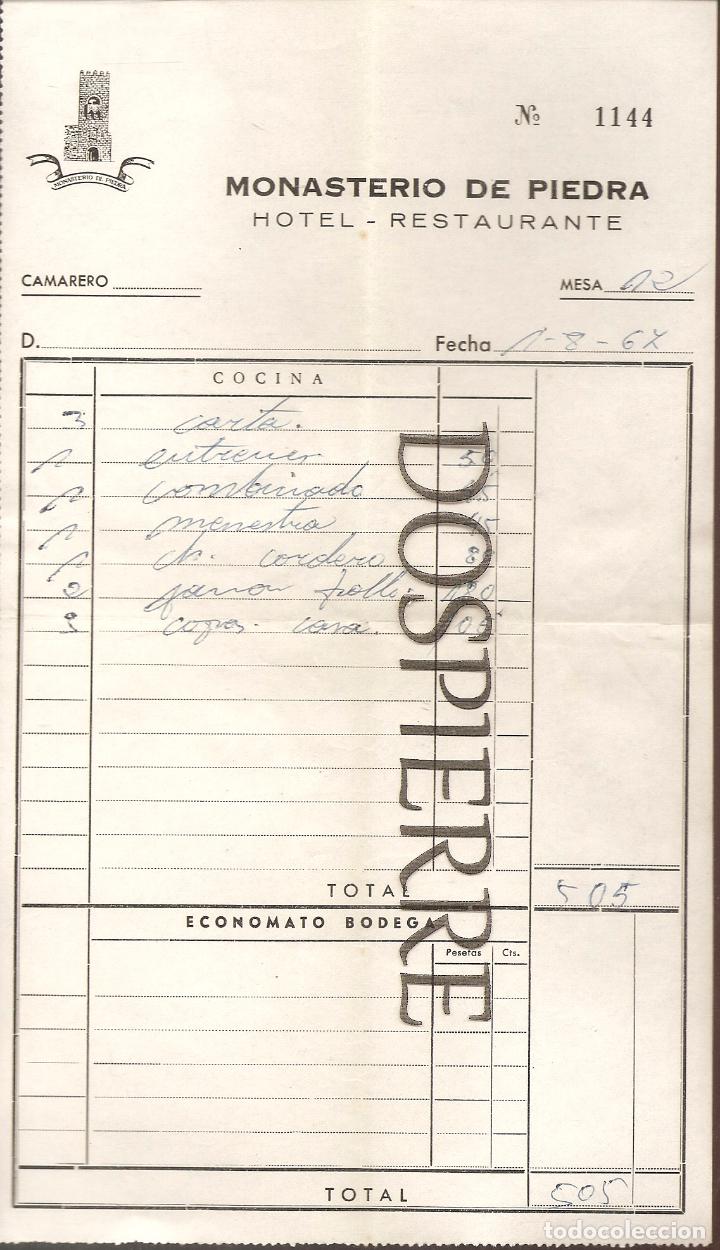 MONASTERIO DE PIEDRA
Nº 1144
MONASTERIO DE PIEDRA
HOTEL - RESTAURANTE
CAMARERO
MESA 12
D.
Fecha 1-8-67
COCINA
3 carta.
1 entremes 50
1 combinado
1 menestra
1 ch. cordero
2 jamon
3 copas casa.
TOTAL 505
ECONOMATO BODEGA
Pesetas Cts.
TOTAL 505
DOSPIERRE
todocoleccion